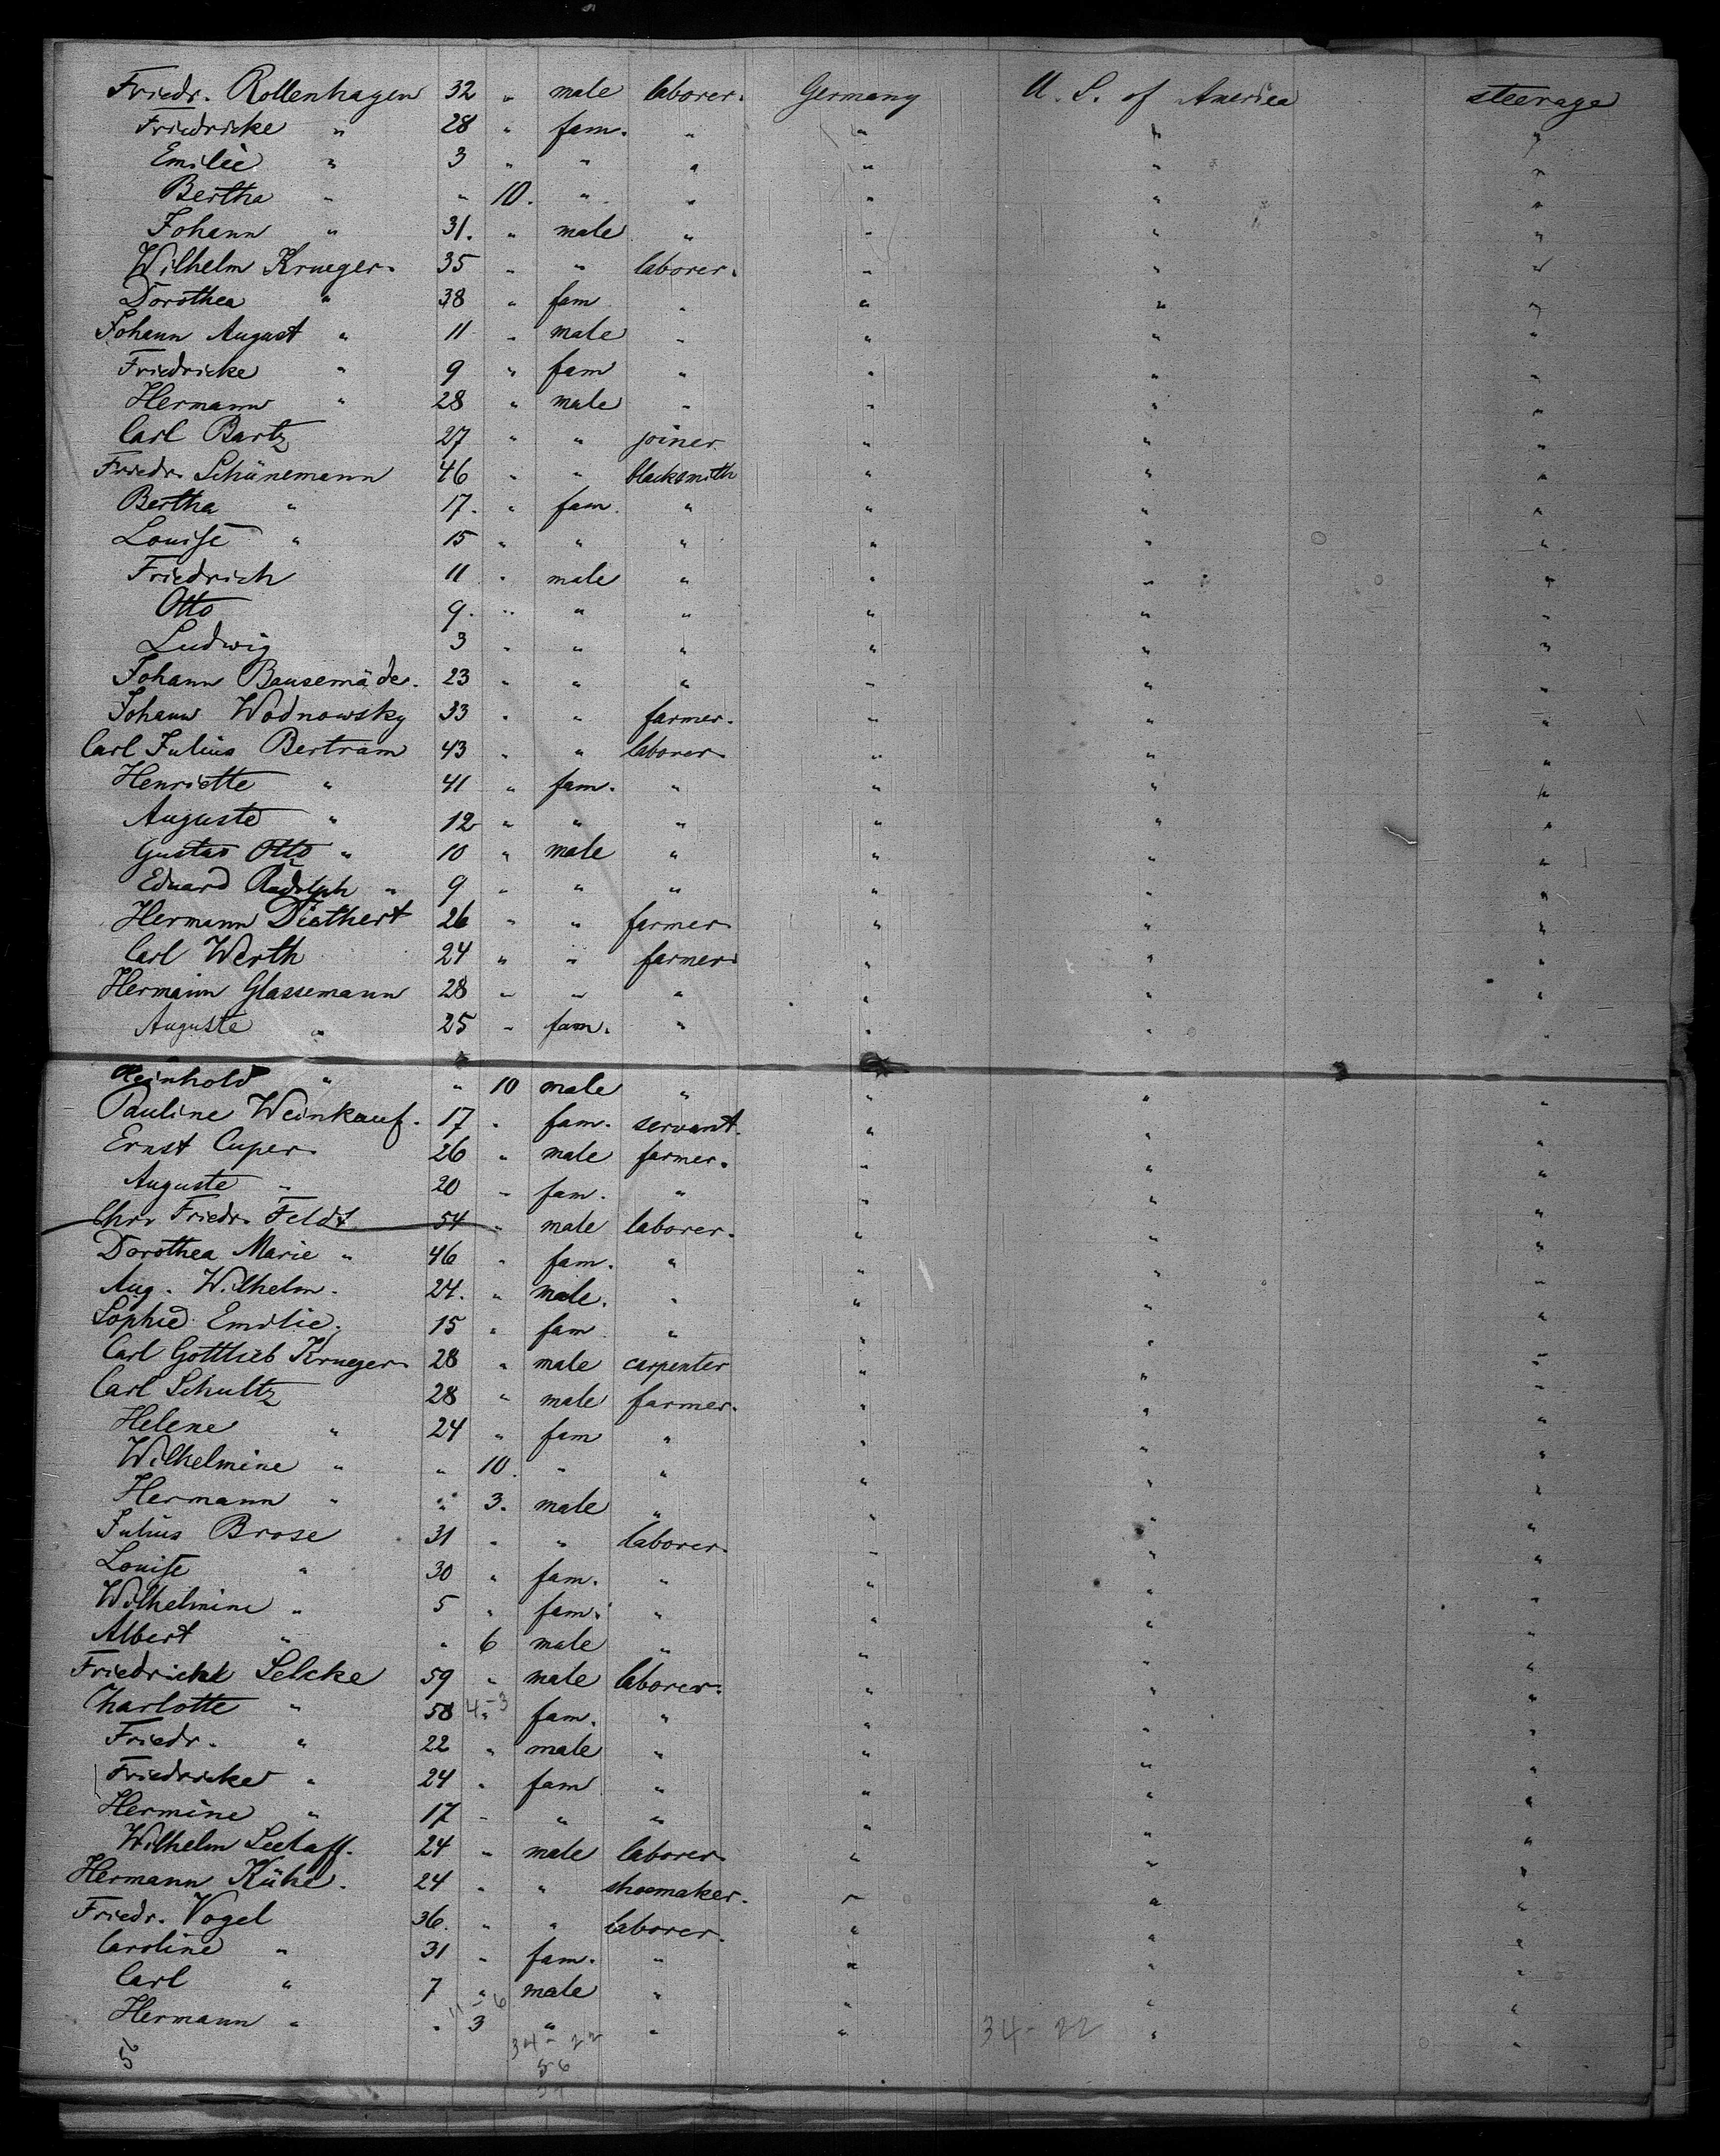 Friedr. Rollenhagen 32 " male laborer. Germany U. S. of America steerage
Friedricke " 28 " fam. " " " "
Emilie " 3 " " " " " "
Bertha " " 10. " " " " "
Johann " 31. " male " " " "
Wilhelm Krueger. 35 " " laborer. " " "
Dorothea " 38 " fam " " " "
Johann August " 11 " male " " " "
Friedricke " 9 " fam " " " "
Hermann " 28 " male " " " "
Carl Bartz 27 " " joiner " " "
Friedr. Schünemann 46 " " blacksmith " " "
Bertha " 17. " fam. " " " "
Louise " 15 " " " " " "
Friedrich 11 " male " " " "
Otto 9. " " " " " "
Ludwig 3 " " " " " "
Johann Bausemäde. 23 " " " " " "
Johann Wodnowsky 33 " " farmer. " " "
Carl Julius Bertram 43 " " laborer. " " "
Henriette " 41 " fam. " " " "
Auguste " 12 " " " " " "
Gustav Otto " 10 " male " " " "
Eduard Rudolph " 9 " " " " " "
Hermann Diethert 26 " " farmer. " " "
Carl Werth 24 " " farmer. " " "
Hermann Glassemann 28 " " " " " "
Auguste " 25 " fam. " " " "
Reinhold " " 10 male " " " "
Pauline Weinkauf. 17 " fam. servant. " " "
Ernst Cuper. 26 " male farmer. " " "
Auguste " 20 " fam. " " " "
Chr. Friedr. Feldt 54 " male laborer. " " "
Dorothea Marie " 46 " fam. " " " "
Aug. Wilhelm. 24. " male. " " " "
Sophie Emilie. 15 " fam " " " "
Carl Gottlieb Krueger 28 " male carpenter " " "
Carl Schultz 28 " male farmer. " " "
Helene " 24 " fam " " " "
Wilhelmine " " 10. " " " " "
Hermann " " 3. male " " " "
Julius Brose 31 " " laborer. " " "
Louise " 30 " fam. " " " "
Wilhelmine " 5 " fam. " " " "
Albert " " 6 male " " " "
Friedrich Selcke 59 " male laborer. " " "
Charlotte " 58 4-3 " fam. " " " "
Friedr. " 22 " male " " " "
Friedricke " 24 " fam " " " "
Hermine " 17 " " " " " "
Wilhelm 24 " male laborer. " " "
Hermann Kühe. 24 " " shoemaker. " " "
Friedr. Vogel 36. " " laborer. " " "
Caroline " 31 " fam. " " " "
Carl " 7 " male " " " "
11-6
Hermann " " 3 " " " " "
34-22 34-22
56
56